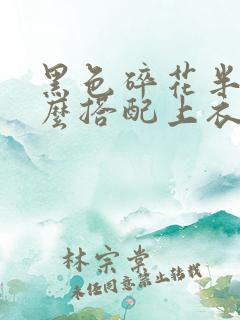 黑色碎花半
麽搭配上衣
林宗棠
未经同意禁止转载